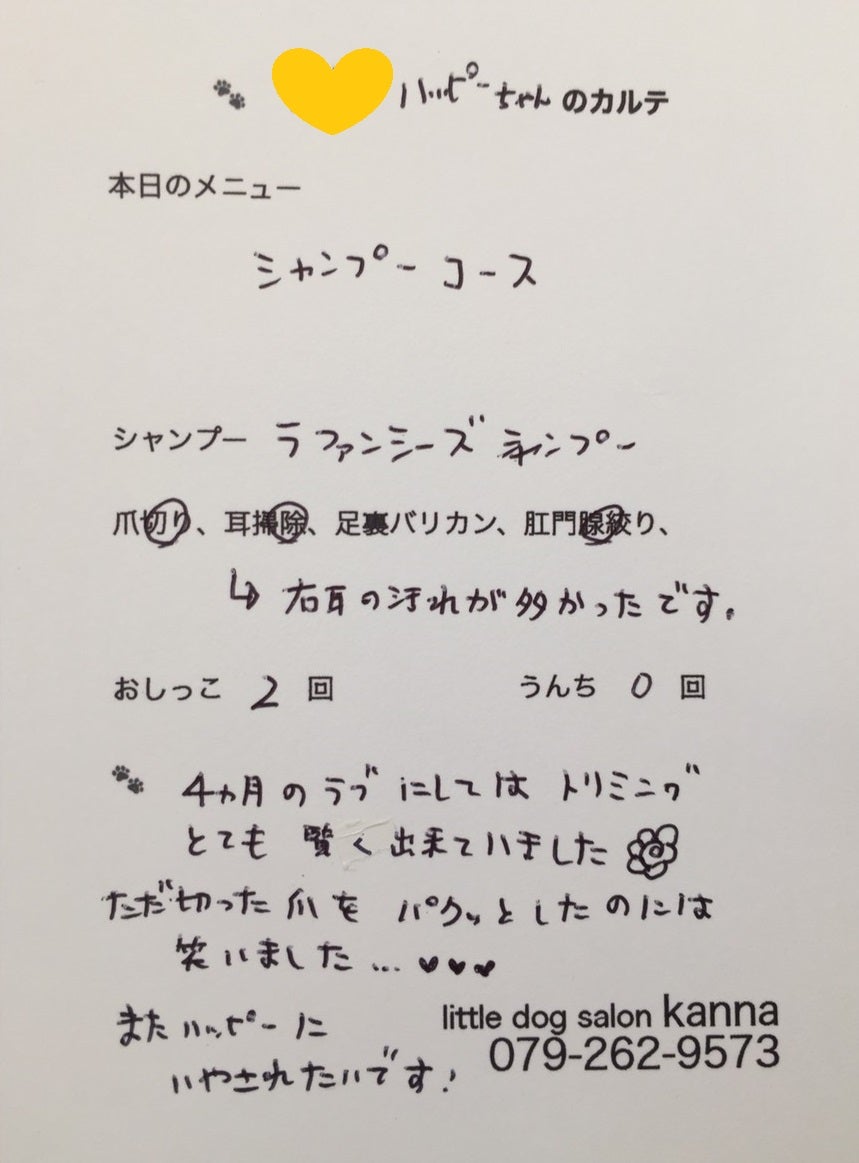 ハッピーちゃんのカルテ
本日のメニュー
シャンプーコース
シャンプー ラファンシーズシャンプー
爪切り、耳掃除、足裏バリカン、肛門腺絞り、
↳ 右耳の汚れが多かったです。
おしっこ 2 回 うんち 0 回
4ヵ月のラブにしてはトリミング
とても賢く出来ていました
ただ切った爪をパクッとしたのには
笑いました…♥♥♥
またハッピーに
いやされたいです!
little dog salon kanna
079-262-9573